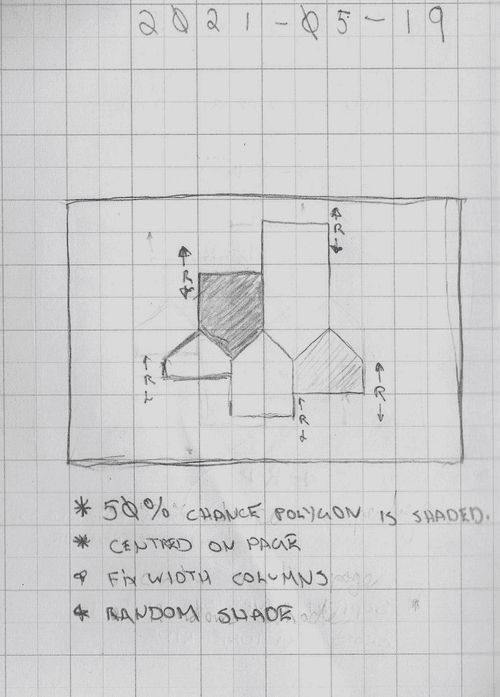 2021-05-19
R
R
R
R
R
* 50% CHANCE POLYGON IS SHADED.
* CENTRED ON PAGE
* FIX WIDTH COLUMNS
* RANDOM SHADE